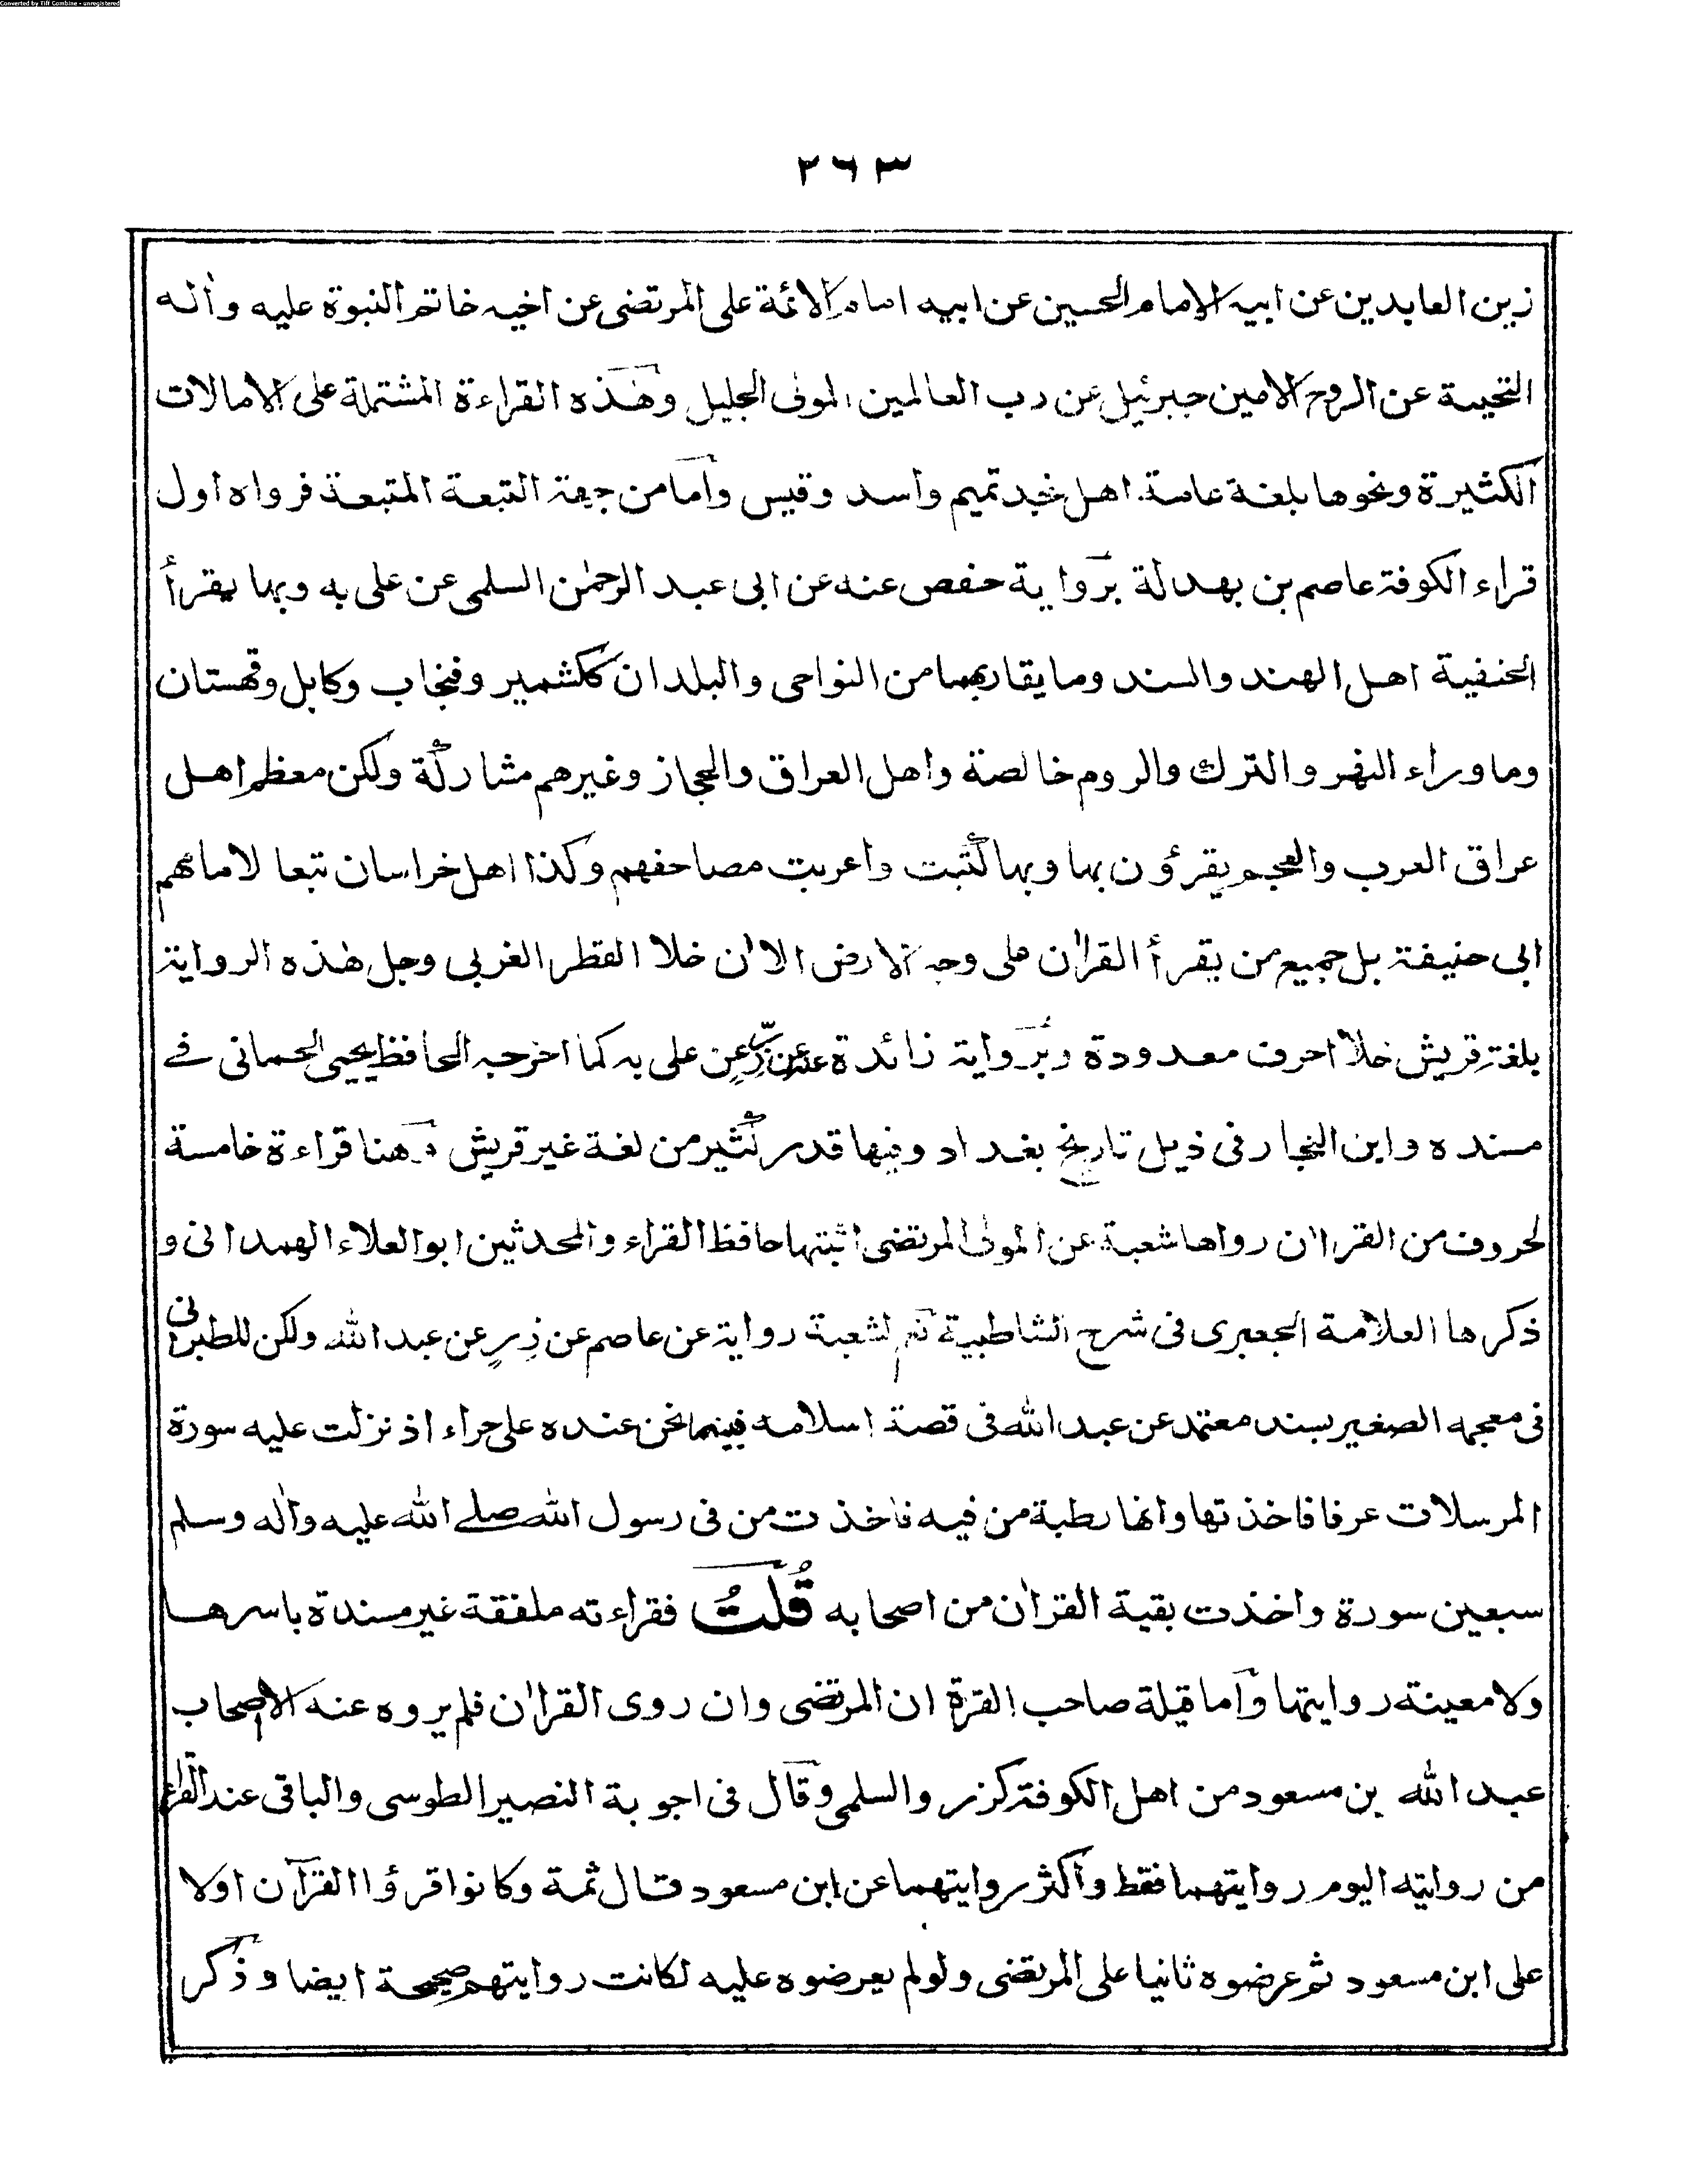 Converted by Tiff Combine - unregistered
٢٦٣
زين العابدين عن ابيه الامام الحسين عن ابيه امام الائمة على المرتضى عن اخيه خاتم النبوة عليه وأله
التحية عن الروح الامين جبرئيل عن رب العالمين المولى الجليل وهذه القراءة المشتملة على الامالات
الكثيرة ونحوها بلغة عامة اهل نجد تميم وأسد وقيس وأما من جهة التبعة المتبعة فرواه اول
قراء الكوفة عاصم بن بهدلة برواية حفص عنه عن ابى عبد الرحمٰن السلمى عن على به وبها يقرأ
الحنفية اهل الهند والسند وما يقاربهما من النواحى والبلدان ككشمير وفنجاب وكابل وقهستان
وما وراء النهر والترك والروم خالصة واهل العراق والحجاز وغيرهم مشاركة ولكن معظم اهل
عراق العرب والعجم يقرؤن بها وبها كتبت واعربت مصاحفهم وكذا اهل خراسان تبعا لامامهم
ابى حنيفة بل جميع من يقرأ القراٰن على وجه الارض الاٰن خلا القطر الغربى وجل هٰذه الرواية
بلغة قريش خلا احرف معدودة وبرواية زائدة عنه عن زِرٍّ عن على به كما اخرجه الحافظ يحيى الحمانى فے
مسنده وابن النجار فى ذيل تاريخ بغداد وفيها قدر كثير من لغة غير قريش وهنا قراءة خامسة
لحروف من القراٰن رواها شعبة عن المولى المرتضى اثبتها حافظ القراء والمحدثين ابو العلاء الهمدانى و
ذكرها العلامة الجعبرى فى شرح الشاطبية ثم لشعبة رواية عن عاصم عن زِرٍ عن عبد الله ولكن للطبرانى
فى معجمه الصغير بسند معتمد عن عبد الله فى قصة اسلامه فبينما نحن عنده على حراء اذ نزلت عليه سورة
المرسلات عرفا فاخذتها وانها رطبة من فيه فاخذت من فى رسول الله صلے الله عليه واٰله وسلم
سبعين سورة واخذت بقية القراٰن من اصحابه قُلْتُ فقراءته ملفقة غير مسندة باسرها
ولا معينة روايتها وأما قيلة صاحب القرة ان المرتضى وان روى القراٰن فلم يروه عنه الا اصحاب
عبد الله بن مسعود من اهل الكوفة كزر والسلمى وقال فى اجوبة النصير الطوسى والباقى عند القراء
من روايته اليوم روايتهما فقط وأكثر روايتهما عن ابن مسعود قال ثمة وكانوا قرؤا القرآن اولا
على ابن مسعود ثم عرضوه ثانيا على المرتضى ولو لم يعرضوه عليه لكانت روايتهم صحيحة ايضا وذكر